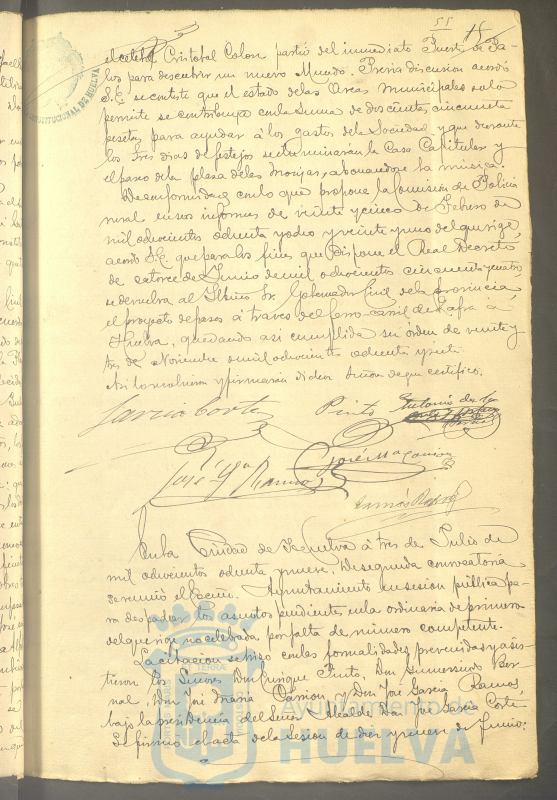 55
el célebre Cristobal Colon partió del inmediato Puerto de Pa-
los para descubrir un nuevo Mundo. Prévia discusion acordó
S.E. se conteste que el estado de las Arcas municipales solo
permite se contribuya con la suma de doscientas cincuenta
pesetas para ayudar á los gastos de la Sociedad, y que durante
los tres dias de festejos se iluminaran la Casa Capitular y
el paseo de la plaza de las Monjas, abonandose la música.
De conformidad con lo que propone la Comision de Policia
rural en sus informes de veinte y cinco de Febrero de
mil ochocientos ochenta y ocho y veinte y uno del que rige,
acordó S.E. que para los fines que dispone el Real Decreto
de catorce de Junio de mil ochocientos cincuenta y cuatro
se devuelva al Iltmo Sr. Gobernador Civil de la provincia,
el proyecto de pasos á traves del ferro-carril de Zafra á
Huelva, quedando asi cumplida su orden de veinte y
tres de Noviembre de mil ochocientos ochenta y siete.
Asi lo resolvieron y firmaron dichos Señores de que certifico.
García Cortés Pinto Antonio de la
José Ga Ramos José Ma Carrion
En la Ciudad de Huelva á tres de Julio de
mil ochocientos ochenta y nueve. De segunda convocatoria
se reunió el Excmo. Ayuntamiento en sesion pública pa-
ra despachar los asuntos pendientes en la ordinaria de primero
del que rige, no celebrada por falta de número competente.
La citacion se hizo con las formalidades prevenidas y asis-
tieron los Señores Don Enrique Pinto, Don Gumersindo Ber-
nal, Don José Maria Carrion y Don José Garcia Ramos,
bajo la presidencia del Señor Alcalde Don José Garcia Cortés
Se firmó el acta de la sesion de diez y nueve de Junio.
CONSTITUCIONAL DE HUELVA
Ayuntamiento de
HUELVA